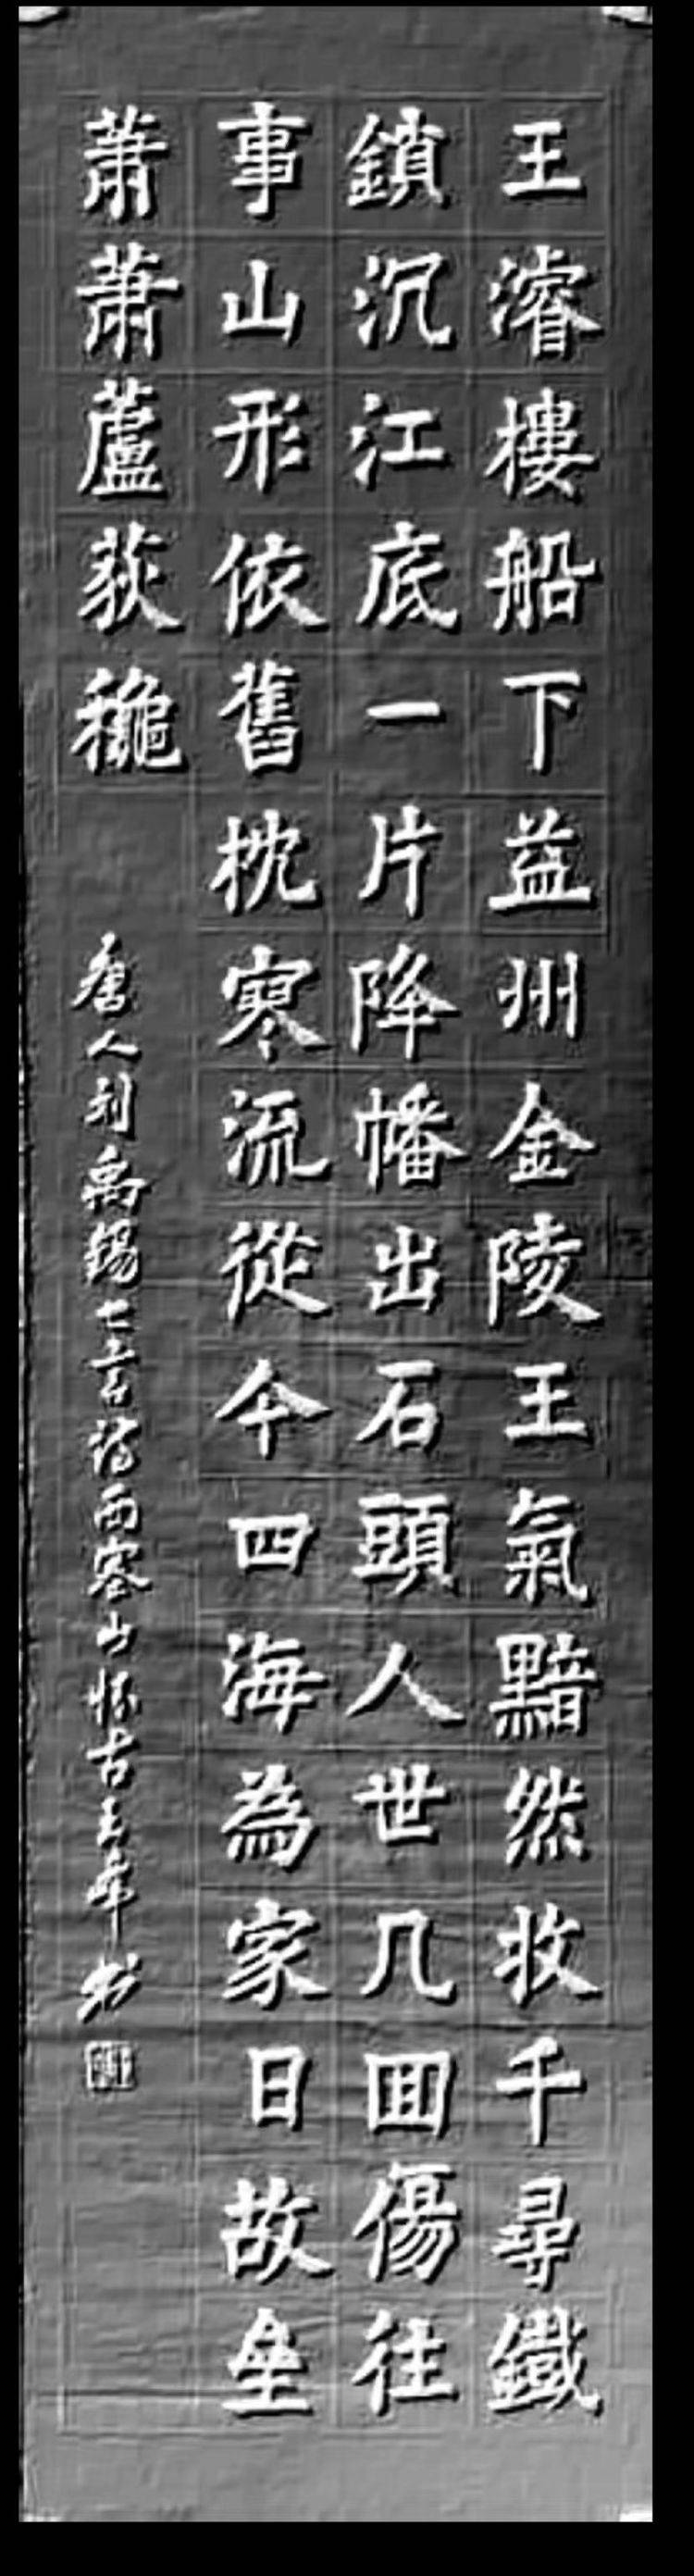 王濬樓船下益州金陵王氣黯然收千尋鐵
鎖沉江底一片降幡出石頭人世几囬傷往
事山形依舊枕寒流從今四海為家日故垒
蕭蕭蘆荻穐
唐人刘禹錫七言诗西塞山怀古